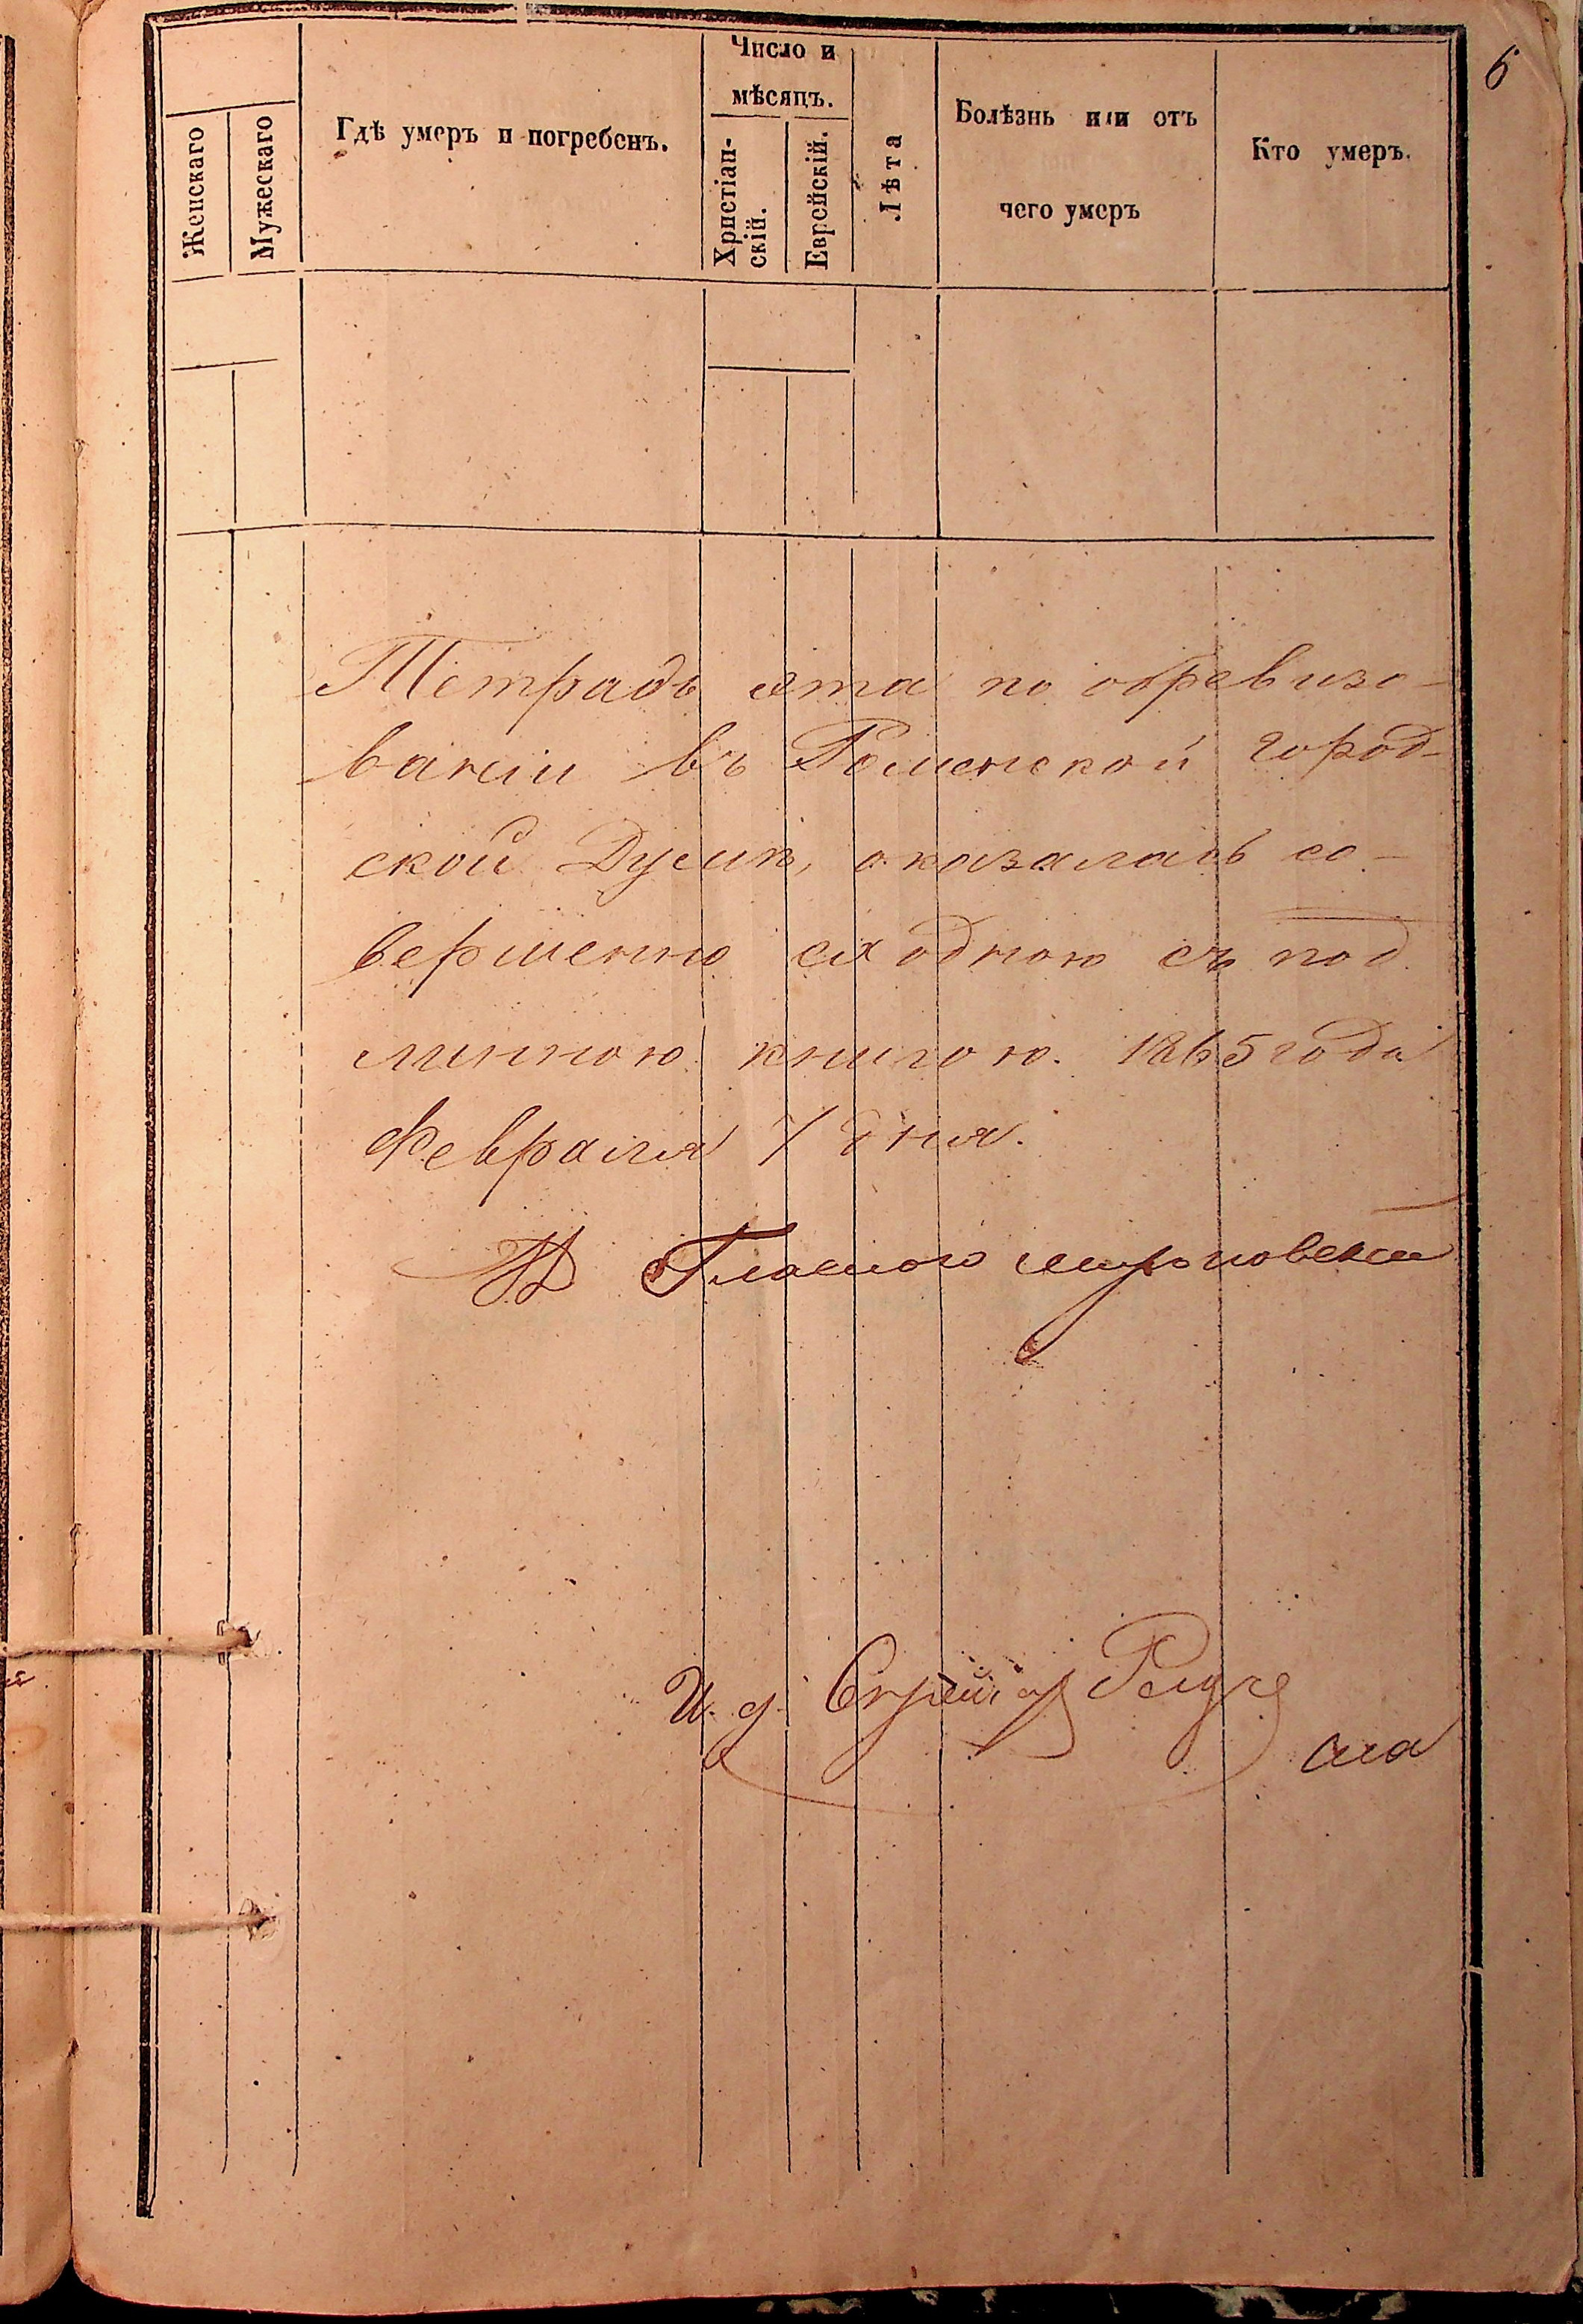 6
Женскаго
Мужескаго
Гдѣ умеръ и погребенъ.
Число и
мѣсяцъ.
Христіан-
скій.
Еврейскій.
Лѣта
Болѣзнь или отъ
чего умеръ
Кто умеръ.
Тетрадь эта по обревизо-
ваніи въ Роменской город-
ской Думѣ, оказалась со-
вершенно сходною съ под
линною книгою. 1865 года
Февраля 7 дня.
Гласного
И. д.